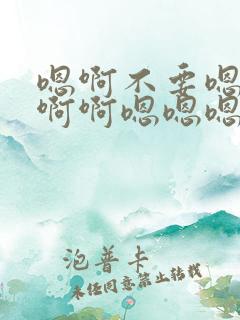 嗯啊不要嗯
啊啊嗯嗯嗯
泡普卡
未经同意禁止转载